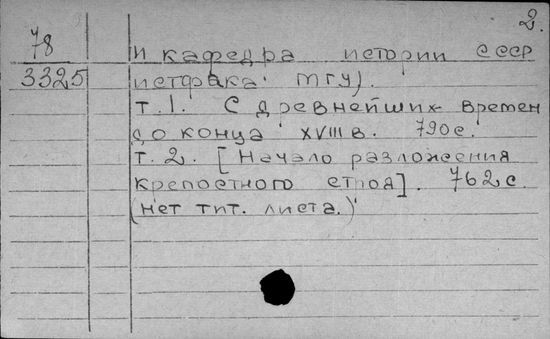 2.
78
3325
и кафедра истории СССР
истфака МГУ).
т.1. С древнейших времен
до конца XVIII в. 790 с.
т.2. [Начало разложения
крепостного строя]. 762 с.
(нет тит. листа.)